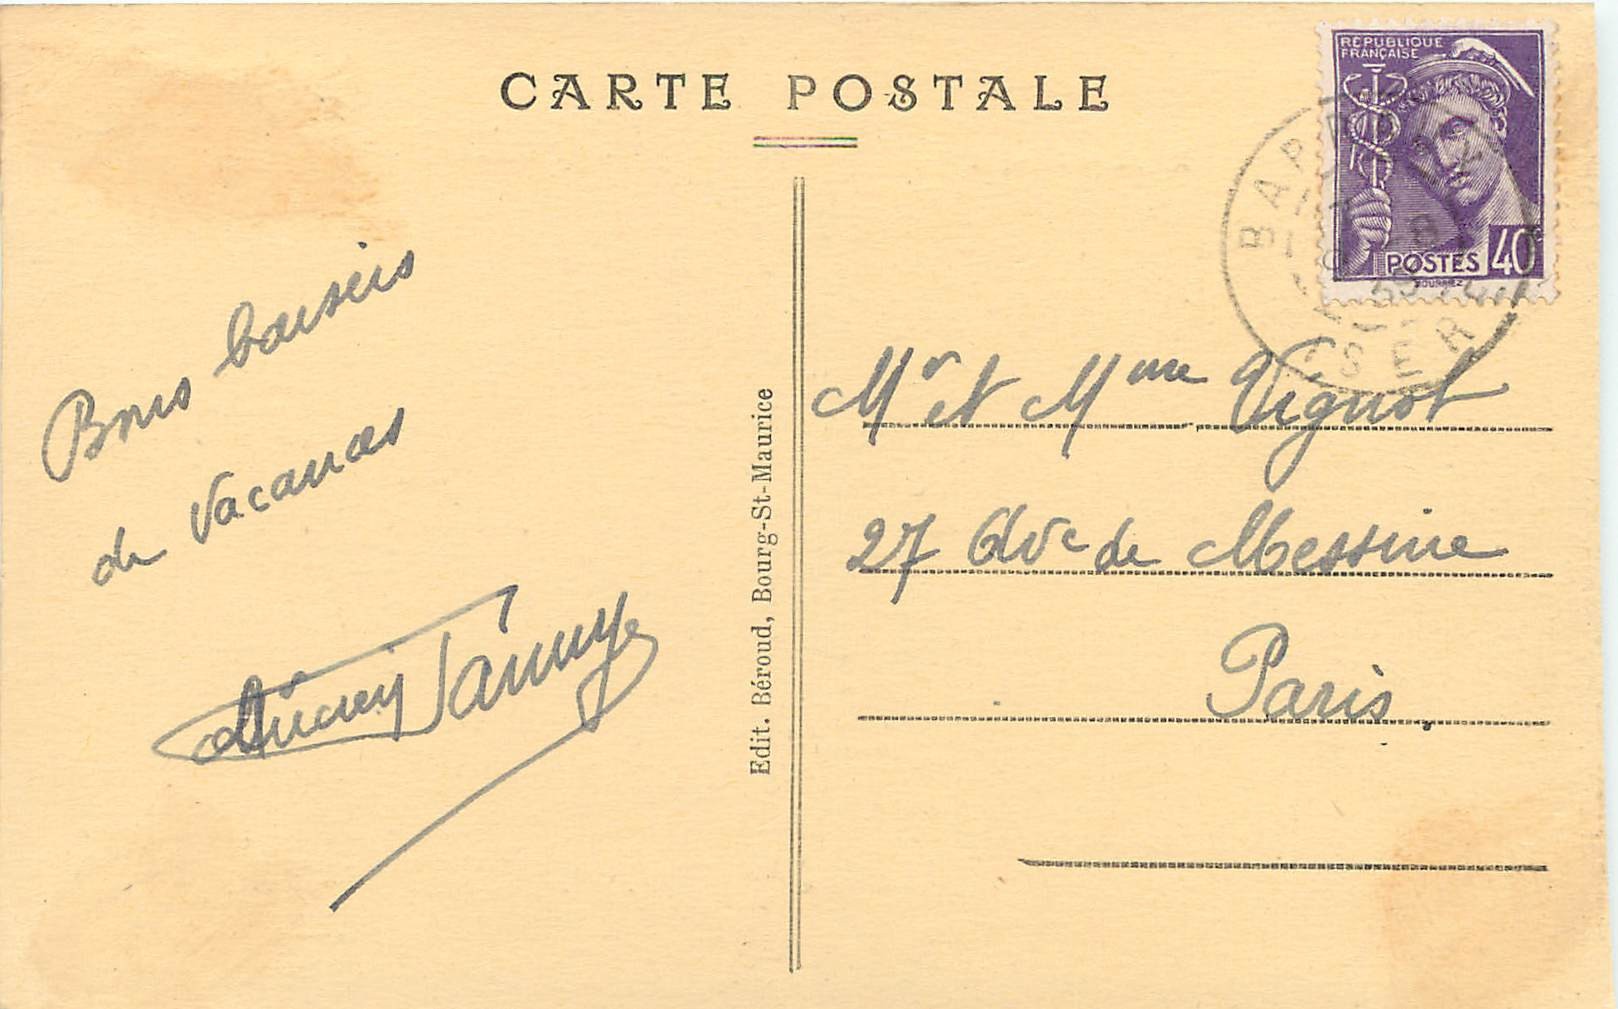 CARTE POSTALE
RÉPUBLIQUE
FRANÇAISE
POSTES 40
ISERE
Bons baisers
de Vacances
Edit. Béroud, Bourg-St-Maurice
Mr et Mme Vignot
27 Ave de Messine
Paris.